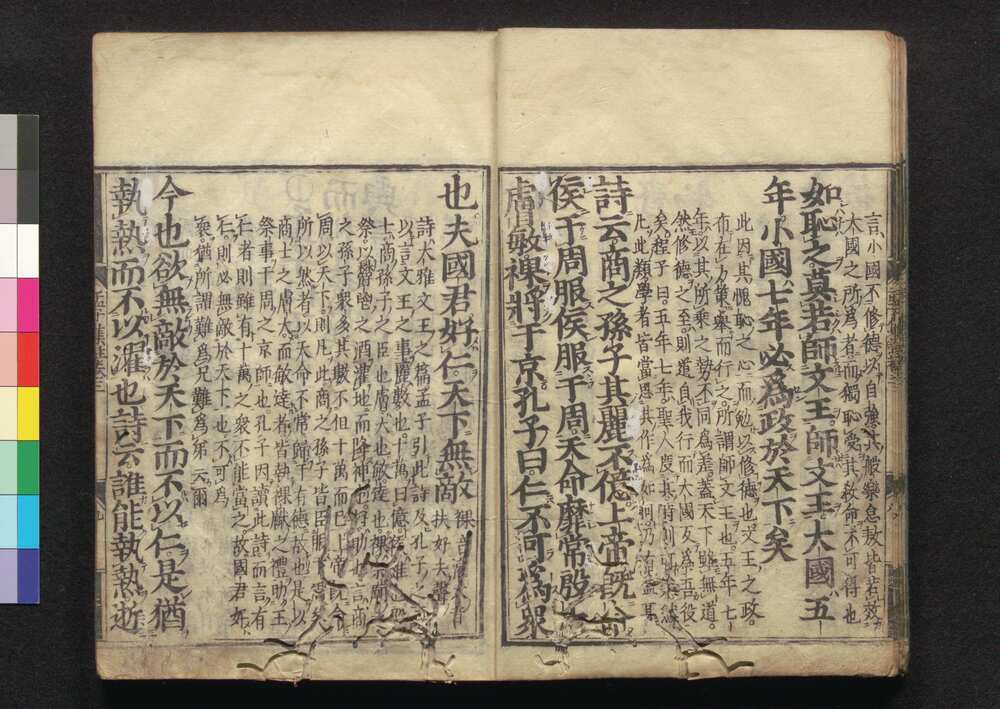 言小國不修德以自強其般樂怠敖皆若效
大國之所為者而獨恥受其教命不可得也
如恥之莫若師文王師文王大國五
年小國七年必為政於天下矣
此因其愧恥之心而勉以修德也文王之政
布在方策舉而行之所謂師文王也五年七
年以其所乘之勢不同為差蓋天下雖無道
然修德之至則道自我行而大國反為吾役
矣程子曰五年七年聖人度其時則可矣然
凡此類學者皆當思其作為如何乃有益耳
詩云商之孫子其麗不億上帝既命
侯于周服侯服于周天命靡常殷士
膚敏祼將于京孔子曰仁不可為眾
也夫國君好仁天下無敵
祼音灌夫音
扶好去聲
詩大雅文王之篇孟子引此詩及孔子之
以言文王之事麗數也十萬曰億侯維也
士商孫子之臣也膚大也敏達也祼宗廟之
祭以鬱鬯之酒灌地而降神也將助也言商
之孫子眾多其數不但十萬而已上帝既命
周以天下則凡此商之孫子皆臣服于周矣
所以然者以天命不常歸于有德故也是以
商士之膚大而敏達者皆執祼獻之禮助王
祭事于周之京師也孔子因讀此詩而言有
仁者則雖有十萬之眾不能當之故國君好
仁則必無敵於天下也不可為
眾猶所謂難為兄難為弟云爾
今也欲無敵於天下而不以仁是猶
執熱而不以濯也詩云誰能執熱逝